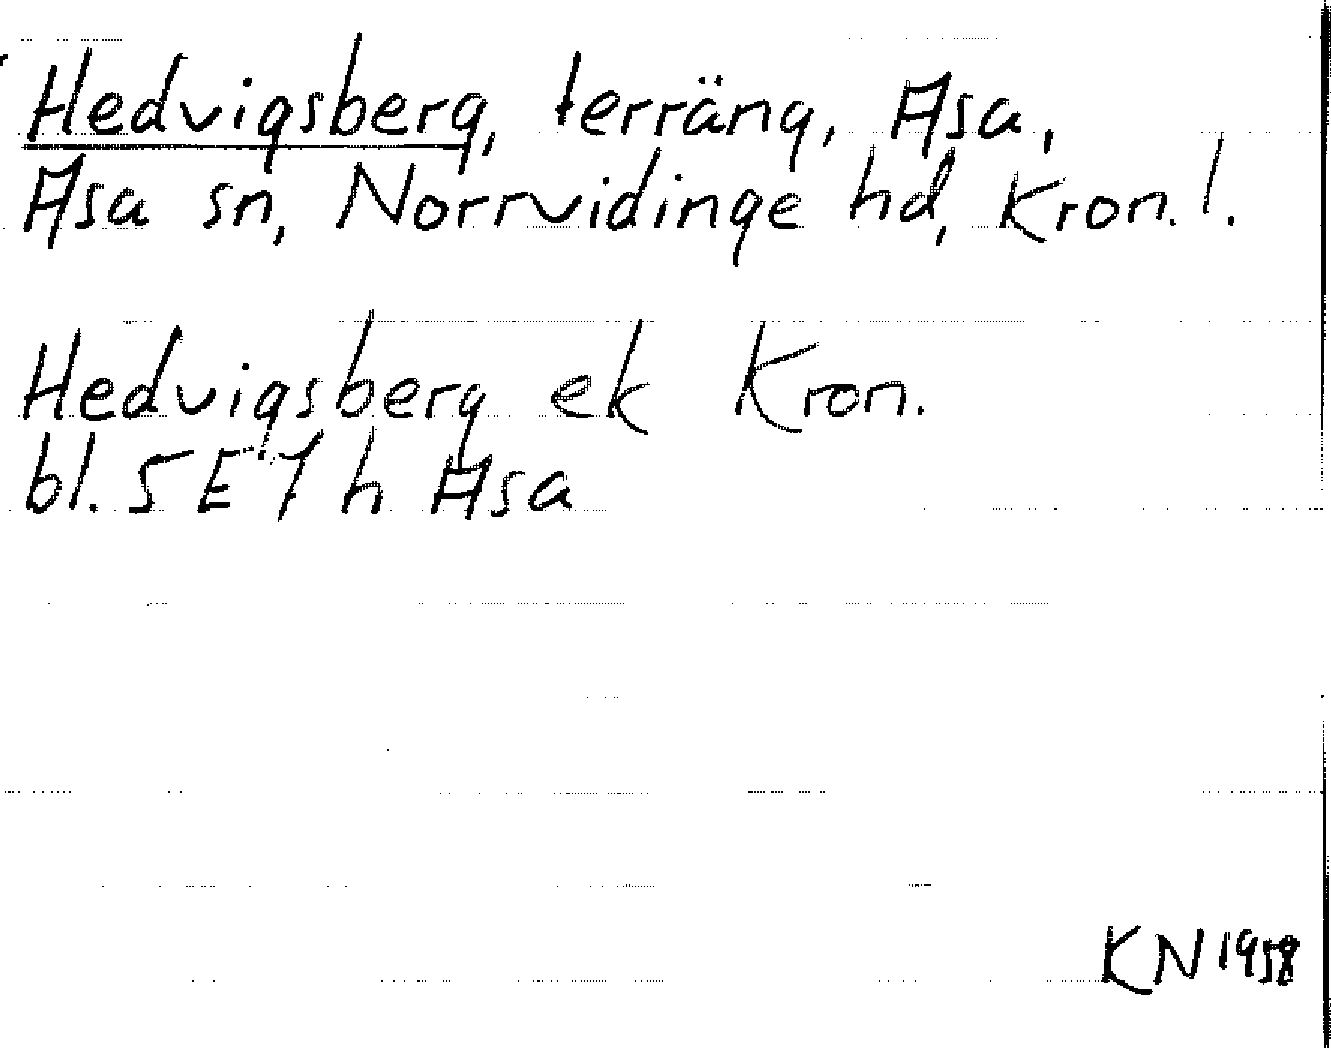 Hedvigsberg, terräng, Asa,
Asa sn, Norrvidinge hd, Kron. l.
Hedvigsberg ek Kron.
bl. 5 E 7 h Asa
KN 1958